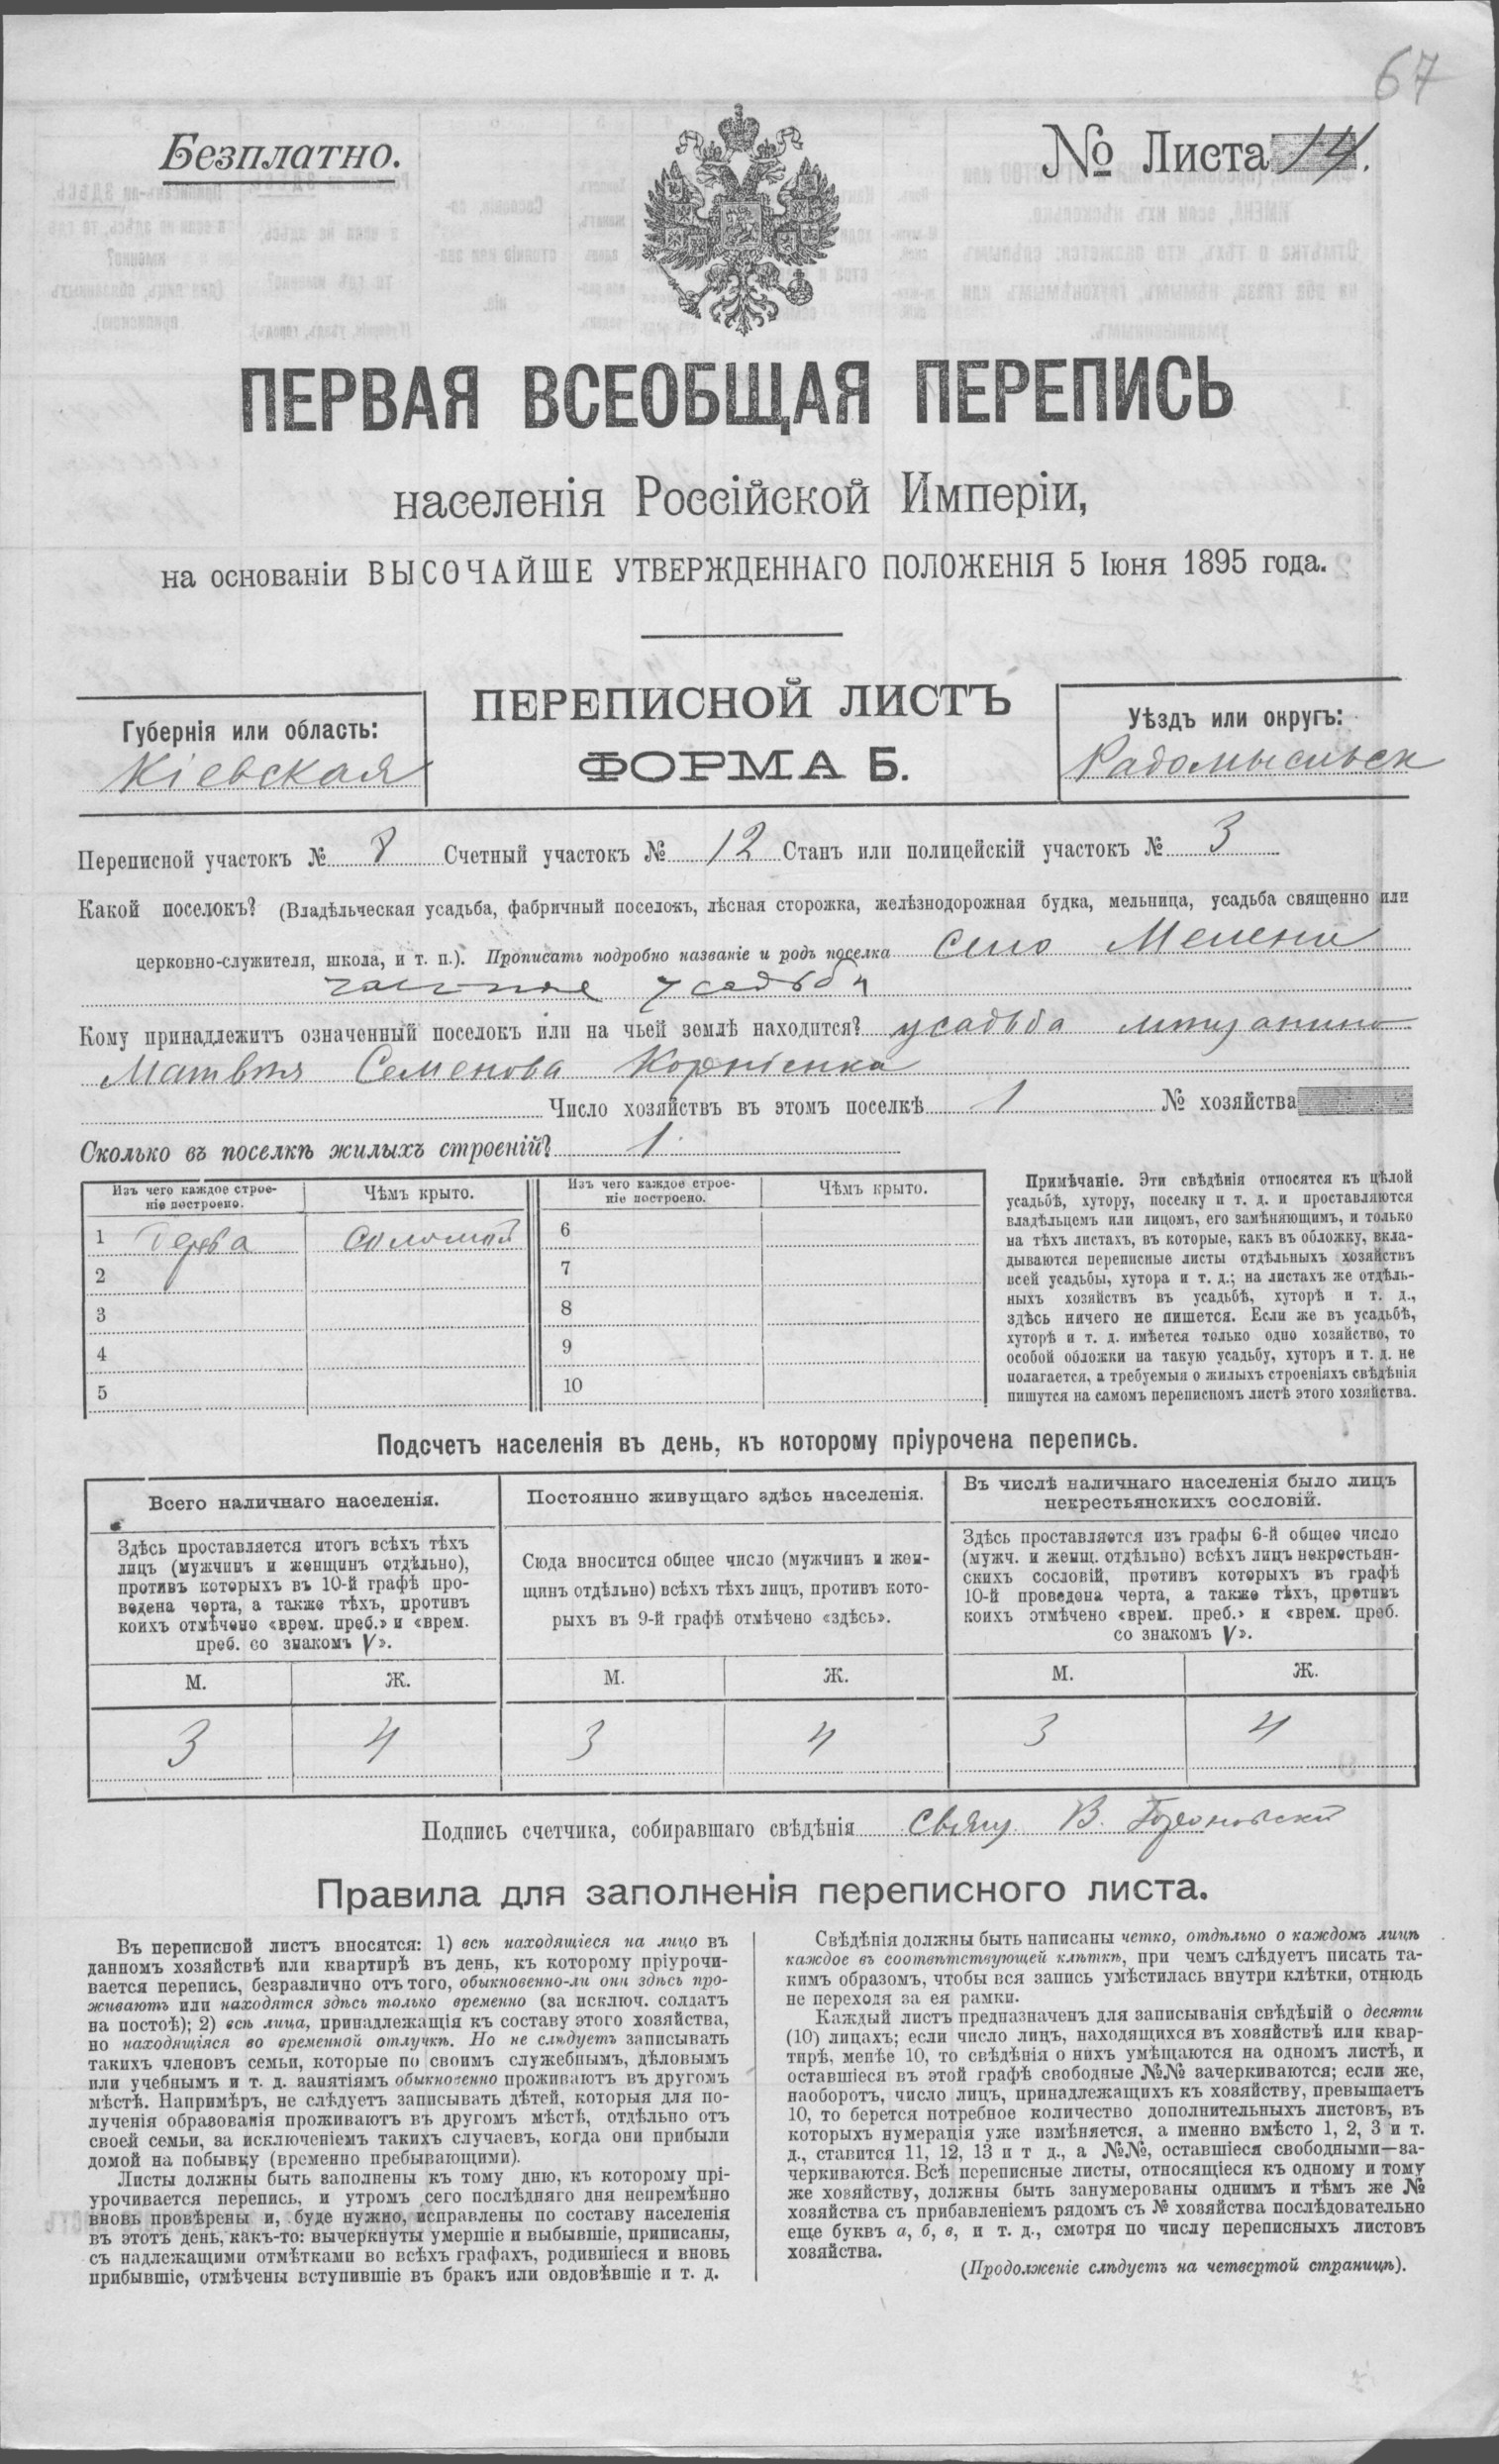 67
Безплатно.
№ Листа 14.
ПЕРВАЯ ВСЕОБЩАЯ ПЕРЕПИСЬ
населенія Россійской Имперіи,
на основаніи ВЫСОЧАЙШЕ УТВЕРЖДЕННАГО ПОЛОЖЕНІЯ 5 Іюня 1895 года.
ПЕРЕПИСНОЙ ЛИСТЪ
ФОРМА Б.
Губернія или область:
Кіевская
Уѣздъ или округъ:
Радомысльск
Переписной участокъ № 8 Счетный участокъ № 12 Станъ или полицейскій участокъ № 3
Какой поселокъ? (Владѣльческая усадьба, фабричный поселокъ, лѣсная сторожка, желѣзнодорожная будка, мельница, усадьба священно или
церковно-служителя, школа, и т. п.). Прописать подробно названіе и родъ поселка село Мелени
усадьба
Кому принадлежитъ означенный поселокъ или на чьей землѣ находится? усадьба
Матвѣя Семенова Корніенка
Число хозяйствъ въ этомъ поселкѣ 1 № хозяйства
Сколько въ поселкѣ жилыхъ строеній? 1.
Изъ чего каждое строе-
ніе построено.
Чѣмъ крыто.
Изъ чего каждое строе-
ніе построено.
Чѣмъ крыто.
1 Дерева соломой
2
3
4
5
6
7
8
9
10
Примѣчаніе. Эти свѣдѣнія относятся къ цѣлой
усадьбѣ, хутору, поселку и т. д. и проставляются
владѣльцемъ или лицомъ, его замѣняющимъ, и только
на тѣхъ листахъ, въ которые, какъ въ обложку, вкла-
дываются переписные листы отдѣльныхъ хозяйствъ
всей усадьбы, хутора и т. д.; на листахъ же отдѣль-
ныхъ хозяйствъ въ усадьбѣ, хуторѣ и т. д.,
здѣсь ничего не пишется. Если же въ усадьбѣ,
хуторѣ и т. д. имѣется только одно хозяйство, то
особой обложки на такую усадьбу, хуторъ и т. д. не
полагается, а требуемыя о жилыхъ строеніяхъ свѣдѣнія
пишутся на самомъ переписномъ листѣ этого хозяйства.
Подсчетъ населенія въ день, къ которому пріурочена перепись.
Всего наличнаго населенія.
Здѣсь проставляется итогъ всѣхъ тѣхъ
лицъ (мужчинъ и женщинъ отдѣльно),
противъ которыхъ въ 10-й графѣ про-
ведена черта, а также тѣхъ, противъ
коихъ отмѣчено «врем. преб.» и «врем.
преб. со знакомъ V».
М. Ж.
3 4
Постоянно живущаго здѣсь населенія.
Сюда вносится общее число (мужчинъ и жен-
щинъ отдѣльно) всѣхъ тѣхъ лицъ, противъ кото-
рыхъ въ 9-й графѣ отмѣчено «здѣсь».
М. Ж.
3 4
Въ числѣ наличнаго населенія было лицъ
некрестьянскихъ сословій.
Здѣсь проставляется изъ графы 6-й общее число
(мужч. и женщ. отдѣльно) всѣхъ лицъ некрестьян-
скихъ сословій, противъ которыхъ въ графѣ
10-й проведена черта, а также тѣхъ, противъ
коихъ отмѣчено «врем. преб.» и «врем. преб.
со знакомъ V».
М. Ж.
3 4
Подпись счетчика, собиравшаго свѣдѣнія Свящ. В.
Правила для заполненія переписного листа.
Въ переписной листъ вносятся: 1) всѣ находящіеся на лицо въ
данномъ хозяйствѣ или квартирѣ въ день, къ которому пріурочи-
вается перепись, безразлично отъ того, обыкновенно-ли они здѣсь про-
живаютъ или находятся здѣсь только временно (за исключ. солдатъ
на постоѣ); 2) всѣ лица, принадлежащія къ составу этого хозяйства,
но находящіяся во временной отлучкѣ. Но не слѣдуетъ записывать
такихъ членовъ семьи, которые по своимъ служебнымъ, дѣловымъ
или учебнымъ и т. д. занятіямъ обыкновенно проживаютъ въ другомъ
мѣстѣ. Напримѣръ, не слѣдуетъ записывать дѣтей, которыя для по-
лученія образованія проживаютъ въ другомъ мѣстѣ, отдѣльно отъ
своей семьи, за исключеніемъ такихъ случаевъ, когда они прибыли
домой на побывку (временно пребывающими).
Листы должны быть заполнены къ тому дню, къ которому прі-
урочивается перепись, и утромъ сего послѣдняго дня непремѣнно
вновь провѣрены и, буде нужно, исправлены по составу населенія
въ этотъ день, какъ-то: вычеркнуты умершіе и выбывшіе, приписаны,
съ надлежащими отмѣтками во всѣхъ графахъ, родившіеся и вновь
прибывшіе, отмѣчены вступившіе въ бракъ или овдовѣвшіе и т. д.
Свѣдѣнія должны быть написаны четко, отдѣльно о каждомъ лицѣ
каждое въ соотвѣтствующей клѣткѣ, при чемъ слѣдуетъ писать та-
кимъ образомъ, чтобы вся запись умѣстилась внутри клѣтки, отнюдь
не переходя за ея рамки.
Каждый листъ предназначенъ для записыванія свѣдѣній о десяти
(10) лицахъ; если число лицъ, находящихся въ хозяйствѣ или квар-
тирѣ, менѣе 10, то свѣдѣнія о нихъ умѣщаются на одномъ листѣ, и
оставшіеся въ этой графѣ свободные №№ зачеркиваются; если же,
наоборотъ, число лицъ, принадлежащихъ къ хозяйству, превышаетъ
10, то берется потребное количество дополнительныхъ листовъ, въ
которыхъ нумерація уже измѣняется, а именно вмѣсто 1, 2, 3 и т.
д., ставится 11, 12, 13 и т д., а №№, оставшіеся свободными—за-
черкиваются. Всѣ переписные листы, относящіеся къ одному и тому
же хозяйству, должны быть занумерованы однимъ и тѣмъ же №
хозяйства съ прибавленіемъ рядомъ съ № хозяйства послѣдовательно
еще буквъ а, б, в, и т. д., смотря по числу переписныхъ листовъ
хозяйства.
(Продолженіе слѣдуетъ на четвертой страницѣ).